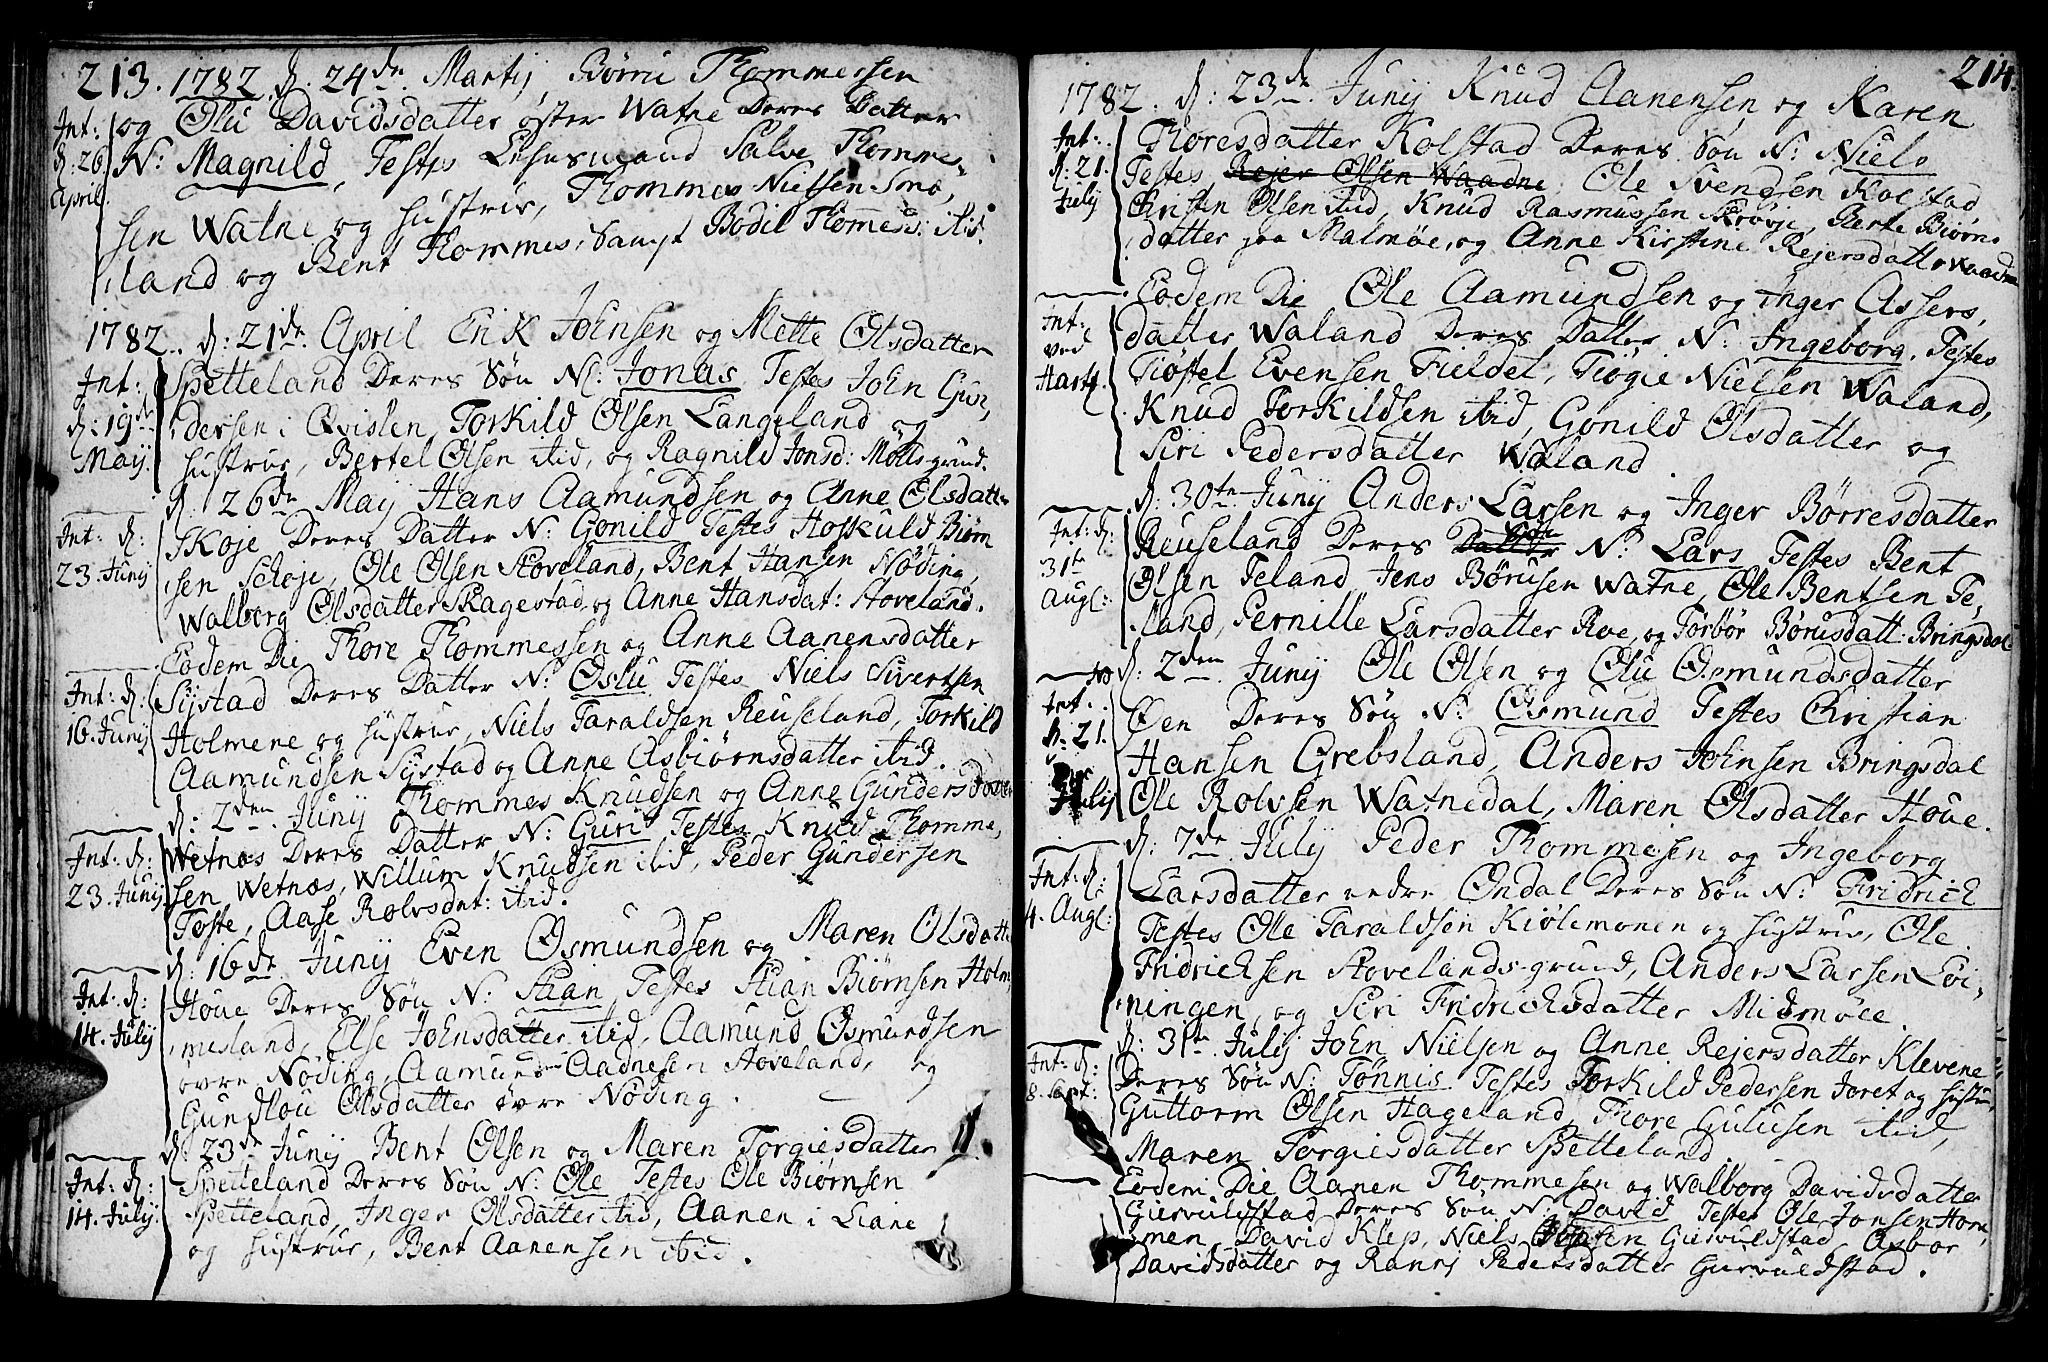 213. 1782 d. 24de Martij, Børru Thommessen
Int: og Olu Davidsdatter øster Watne Deres Datter
d: 26 N: Magnild, Testes Lensmand Salve Thommes=
April. sen Watne og Hustrue, Thommes Nielsen Smø,
land og Bent Thommes: Samt Bodil Thomesd: ibid.
1782. d: 21de April Erik Johnsen og Mette Olsdatter
Int: Spetteland Deres Søn N: Jonas, Testes John Gun,
d: 19de dersen i Qvislen, Torkild Olsen Langeland og
Maij. Hustrue, Bertel Olsen ibid, og Ragnild Jonsd: Molls grund.
d. 26de Maij Hans Aamundsen og Anne Olsdatter
Int: d: Skoje Deres Datter N: Gonild Testes Hoskuld Biørn
23. Junij sen Schoje, Ole Olsen Stoveland, Bent Hansen Nöding,
Walborg Olsdatter Skagestad, og Anne Hansdat: Stoveland.
Eodem Die Thore Thommessen og Anne Aanensdatter
Int: d: Sijstad Deres Datter N: Oslu Testes Niels Sivertsen
16. Junij Holmene og Hustrue, Niels Taraldsen Reuseland, Torkild
Aamundsen Sijstad og Anne Asbiørnsdatter ibid.
d: 2den Junij Thommes Knudsen og Anne Gundersdatter
Int: d: Wetnæs Deres Datter N: Guri Testes Knud Thomme,
23. Junij sen Wetnæs, Willum Knudsen ibid, Peder Gundersen
Toste, Aase Rolvsdat: ibid.
d: 16de Junij Even Osmundsen og Maren Olsdatter
Int: d: Houe Deres Søn N: Stian, Testes Stian Biørnsen Holm,
14. Julij mesland, Else Johnsdatter ibid, Aamund Osmundsen
øvre Nöding, Aamund Aadnesen Stoveland, og
Gundlou Olsdatter øvre Nöding.
d. 23de Junij Bent Olsen og Maren Torgiesdatter
Int: d: Spetteland Deres Søn N: Ole Testes Ole Biørnsen
14. Julij. Spetteland, Inger Olsdatter ibid, Aanen i Liane
og Hustrue, Bent Aanensen ibid.
214.
1782. d: 23de Junij Knud Aanensen og Karen
Int: Thoresdatter Kolstad Deres Søn N: Niels
d: 21. Testes Rejer Olsen Waadne. Ole Svendsen Kolstad
Julij Christen Olsen ibid, Knud Rasmussen Skoje, Berte Biørns
datter paa Malmøe, og Anne Kirstine Rejersdatter Waadne
Eodem Die Ole Aamundsen og Inger Assers,
Int: datter Waland Deres Datter N: Ingeborg. Testes
ved Tiøstel Evensen Fieldet, Tiøgie Nielsen Waland,
Hartz. Knud Torkildsen ibid, Gonild Olsdatter og
Siri Pedersdatter Waland.
d: 30te Junij Anders Larsen og Inger Børresdatter
Int: d: Reuseland Deres Datter Søn N: Lars Testes Bent
31te Olsen Teland, Jens Børusen Watne, Ole Bentsen Te,
Augl: land, Pernille Larsdatter Roe, og Torbør Børusdatt: Bringsdal
d: 2den Junij Ole Olsen og Olu Osmundsdatter
Int: Øen Deres Søn N: Osmund Testes Christian
d: 21. Hansen Grebsland, Anders Johnsen Bringsdal
Julij Ole Rolvsen Watnedal, Maren Olsdatter Houe.
d: 7de Julij Peder Thommesen og Ingeborg
Int: d: Larsdatter nedre Øndal Deres Søn N: Fridrich
4. Augl: Testes Ole Taraldsen Kiølemonen og Hustrue, Ole
Fridrichsen Stovelands-grund, Anders Larsen Løi-
ningen, og Siri Fridrichsdatter Midmøe.
d: 31te Julij John Nielsen og Anne Rejersdatter Klevene
Int: d: Deres Søn N: Tønnis Testes Torkild Pedersen Joret og Hustru,
8. Sept: Guttorm Olsen Hageland, Thore Gulusen ibid,
Maren Torgiesdatter Spetteland.
Eodem Die Aanen Thommesen og Walborg Davidsdatter
Giervuldstad Deres Søn N: David Testes Ole Jonsen Horn,
men, David Klep, Niels Giervuldstad, Asbor
Davidsdatter og Rannj Pedersdatter Giervuldstad.